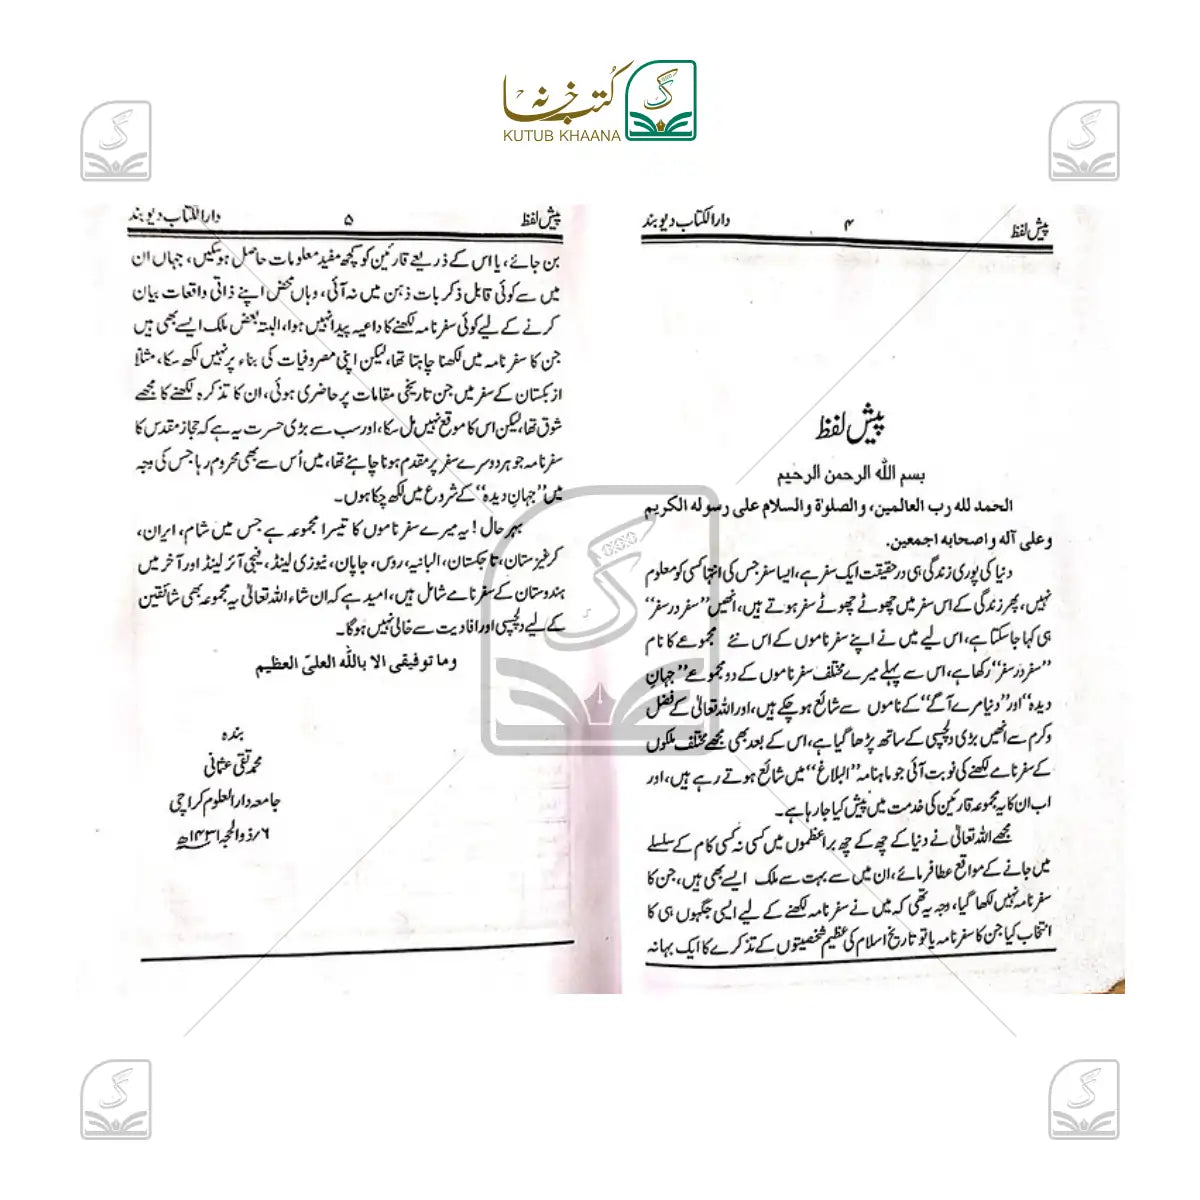 کتب خانہ
KUTUB KHAANA
پیش لفظ ۴ دارالکتاب دیوبند
پیش لفظ
بسم الله الرحمن الرحیم
الحمد لله رب العالمین، والصلوٰة والسلام علی رسوله الکریم
وعلی آله واصحابه اجمعین.
دنیا کی پوری زندگی ہی درحقیقت ایک سفر ہے، ایسا سفر جس کی انتہا کسی کو معلوم
نہیں، پھر زندگی کے اس سفر میں چھوٹے چھوٹے سفر ہوتے ہیں، انھیں ”سفر در سفر“
ہی کہا جاسکتا ہے، اس لیے میں نے اپنے سفرناموں کے اس نئے مجموعے کا نام
”سفر در سفر“ رکھا ہے، اس سے پہلے میرے مختلف سفرناموں کے دو مجموعے ”جہانِ
دیدہ“ اور ”دنیا مرے آگے“ کے ناموں سے شائع ہوچکے ہیں، اور اللہ تعالیٰ کے فضل
وکرم سے انھیں بڑی دلچسپی کے ساتھ پڑھا گیا ہے، اس کے بعد بھی مجھے مختلف ملکوں
کے سفرنامے لکھنے کی نوبت آئی جو ماہنامہ ”البلاغ“ میں شائع ہوتے رہے ہیں، اور
اب ان کا یہ مجموعہ قارئین کی خدمت میں پیش کیا جارہا ہے۔
مجھے اللہ تعالیٰ نے دنیا کے چھ کے چھ براعظموں میں کسی نہ کسی کام کے سلسلے
میں جانے کے مواقع عطا فرمائے، ان میں سے بہت سے ملک ایسے بھی ہیں، جن کا
سفرنامہ نہیں لکھا گیا، وجہ یہ تھی کہ میں نے سفرنامہ لکھنے کے لیے ایسی جگہوں ہی کا
انتخاب کیا جن کا سفرنامہ یا تو تاریخ اسلام کی عظیم شخصیتوں کے تذکرے کا ایک بہانہ
پیش لفظ ۵ دارالکتاب دیوبند
بن جائے، یا اس کے ذریعے قارئین کو کچھ مفید معلومات حاصل ہوسکیں، جہاں ان
میں سے کوئی قابل ذکر بات ذہن میں نہ آئی، وہاں محض اپنے ذاتی واقعات بیان
کرنے کے لیے کوئی سفرنامہ لکھنے کا داعیہ پیدا نہیں ہوا، البتہ بعض ملک ایسے بھی ہیں
جن کا سفرنامہ میں لکھنا چاہتا تھا، لیکن اپنی مصروفیات کی بناء پر نہیں لکھ سکا، مثلاً
ازبکستان کے سفر میں جن تاریخی مقامات پر حاضری ہوئی، ان کا تذکرہ لکھنے کا مجھے
شوق تھا، لیکن اس کا موقع نہیں مل سکا، اور سب سے بڑی حسرت یہ ہے کہ حجاز مقدس کا
سفرنامہ جو ہر دوسرے سفر پر مقدم ہونا چاہئے تھا، میں اُس سے بھی محروم رہا جس کی وجہ
میں ”جہانِ دیدہ“ کے شروع میں لکھ چکا ہوں۔
بہرحال! یہ میرے سفرناموں کا تیسرا مجموعہ ہے جس میں شام، ایران،
کرغیزستان، تاجکستان، البانیہ، روس، جاپان، نیوزی لینڈ، فیجی آئرلینڈ اور آخر میں
ہندوستان کے سفرنامے شامل ہیں، امید ہے کہ ان شاء اللہ تعالیٰ یہ مجموعہ بھی شائقین
کے لیے دلچسپی اور افادیت سے خالی نہیں ہوگا۔
وما توفیقی الا بالله العلیّ العظیم
بندہ
محمد تقی عثمانی
جامعہ دارالعلوم کراچی
۶/ذوالحجہ ۱۴۳۱ھ